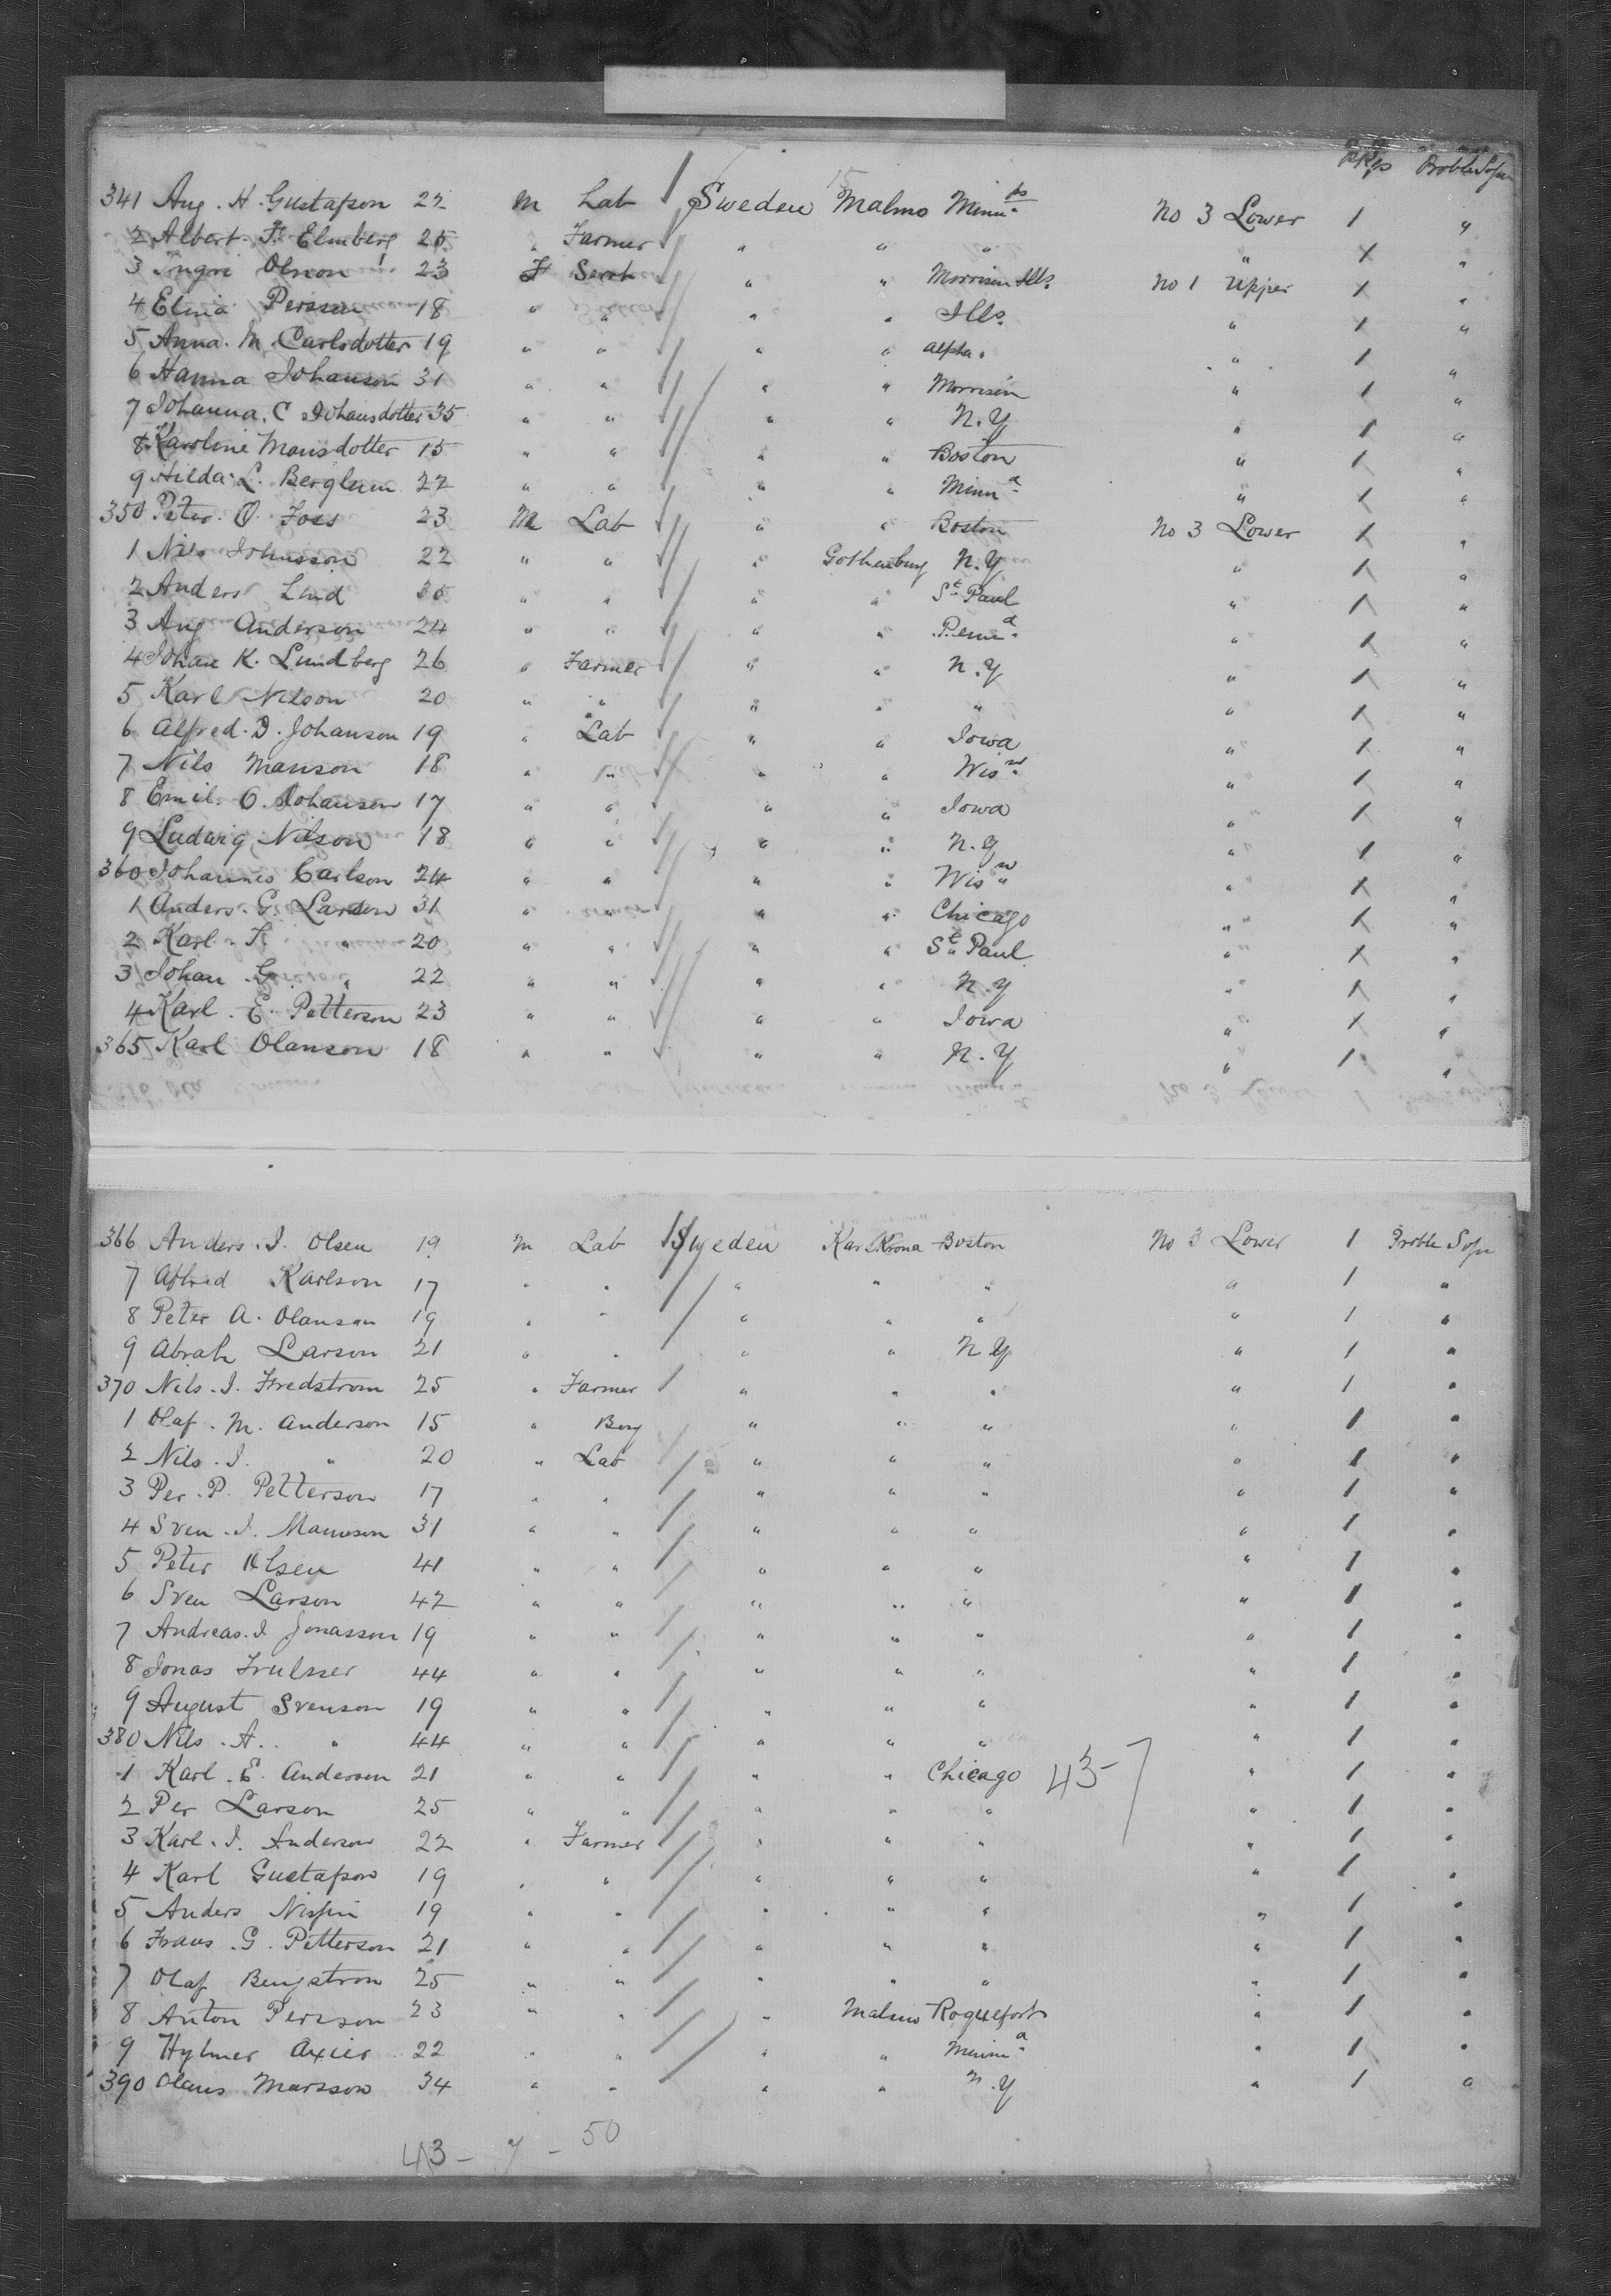 Pkgs Proble Sojn
341 Aug. H. Gustafson 22 M Lab / Sweden Malmo Minn a No 3 Lower 1 "
2 Albert. F. Elmberg 25 " Farmer " " " " 1 "
3 Ingri Olsson 23 F Servt " " Morrison Ills. No 1 Upper 1 "
4 Elina Persson 18 " " " " Ills. " 1 "
5 Anna. M. Carlsdotter 19 " " " " Alpha. " 1 "
6 Hanna Johanson 31 " " " " Morrison " 1 "
7 Johanna. C Johansdotter 35 " " " " N.Y " 1 "
8 Karoline Mansdotter 15 " " " " Boston " 1 "
9 Hilda. L. Berglum 22 " " " " Minn a " 1 "
350 Peter. O. Foss 23 M Lab " " Boston No 3 Lower 1 "
1 Nils Johnsson 22 " " " Gothenburg N.Y " 1 "
2 Anders Lind 35 " " " " St Paul " 1 "
3 Aug Anderson 24 " " " " Penn a. " 1 "
4 Johan K. Lundberg 26 " Farmer " " N.Y " 1 "
5 Karl Nilson 20 " " " " " " 1 "
6 Alfred. D. Johanson 19 " Lab " " Iowa " 1 "
7 Nils Manson 18 " " " " Wis n. " 1 "
8 Emil. O. Johanson 17 " " " " Iowa " 1 "
9 Ludwig Nilson 18 " " " " N.Y " 1 "
360 Johannes Carlson 24 " " " " Wis n " 1 "
1 Anders. G. Larson 31 " " " " Chicago " 1 "
2 Karl. F. " 20 " " " " St Paul " 1 "
3 Johan G. " 22 " " " " N.Y " 1 "
4 Karl. E. Petterson 23 " " " " Iowa " 1 "
365 Karl Olanson 18 " " " " N.Y " 1 "
366 Anders. I. Olsen 19 M Lab / Sweden Karlskrona Boston No 3 Lower 1 Proble Sojn
7 Alfred Karlson 17 " " " " " " 1 "
8 Peter A. Olanson 19 " " " " " " 1 "
9 Abrah Larson 21 " " " " N.Y " 1 "
370 Nils. I. Fredstrom 25 " Farmer " " " " 1 "
1 Olaf. M. Anderson 15 " Boy " " " " 1 "
2 Nils. I. " 20 " Lab " " " " 1 "
3 Per. P. Petterson 17 " " " " " " 1 "
4 Sven. I. 31 " " " " " " 1 "
5 Peter Olsen 41 " " " " " " 1 "
6 Sven Larson 42 " " " " " " 1 "
7 Andreas. I Jonasson 19 " " " " " " 1 "
8 Jonas 44 " " " " " " 1 "
9 August Svenson 19 " " " " " " 1 "
380 Nils. A. " 44 " " " " " " 1 "
1 Karl. E. Anderson 21 " " " " Chicago 43 - 7 " 1 "
2 Per Larson 25 " " " " " " 1 "
3 Karl. I. Anderson 22 " Farmer " " " " 1 "
4 Karl Gustafson 19 " " " " " " 1 "
5 Anders 19 " " " " " " 1 "
6 Frans. G. Petterson 21 " " " " " " 1 "
7 Olaf Bengstrom 25 " " " " " " 1 "
8 Anton Persson 23 " " " Malmo Roquefort " 1 "
9 Hylmer Axier 22 " " " " Minn a " 1 "
390 Olaus Marsson 34 " " " " N.Y " 1 "
43 - 7 - 50